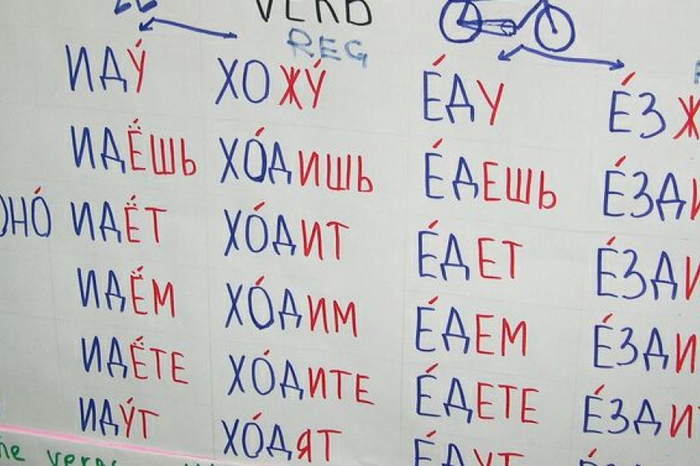 VERB
REG
ИДУ́ ХОЖУ́ Е́ДУ Е́ЗЖ
ИДЁШЬ ХО́ДИШЬ Е́ДЕШЬ Е́ЗДИ
ОНО́ ИДЁТ ХО́ДИТ Е́ДЕТ Е́ЗДИ
ИДЁМ ХО́ДИМ Е́ДЕМ Е́ЗДИ
ИДЁТЕ ХО́ДИТЕ Е́ДЕТЕ Е́ЗДИ
ИДУ́Т ХО́ДЯТ Е́ДУТ
he verb